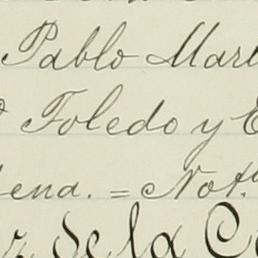 Pablo Mart
Toledo y
ena. = Not.
de la